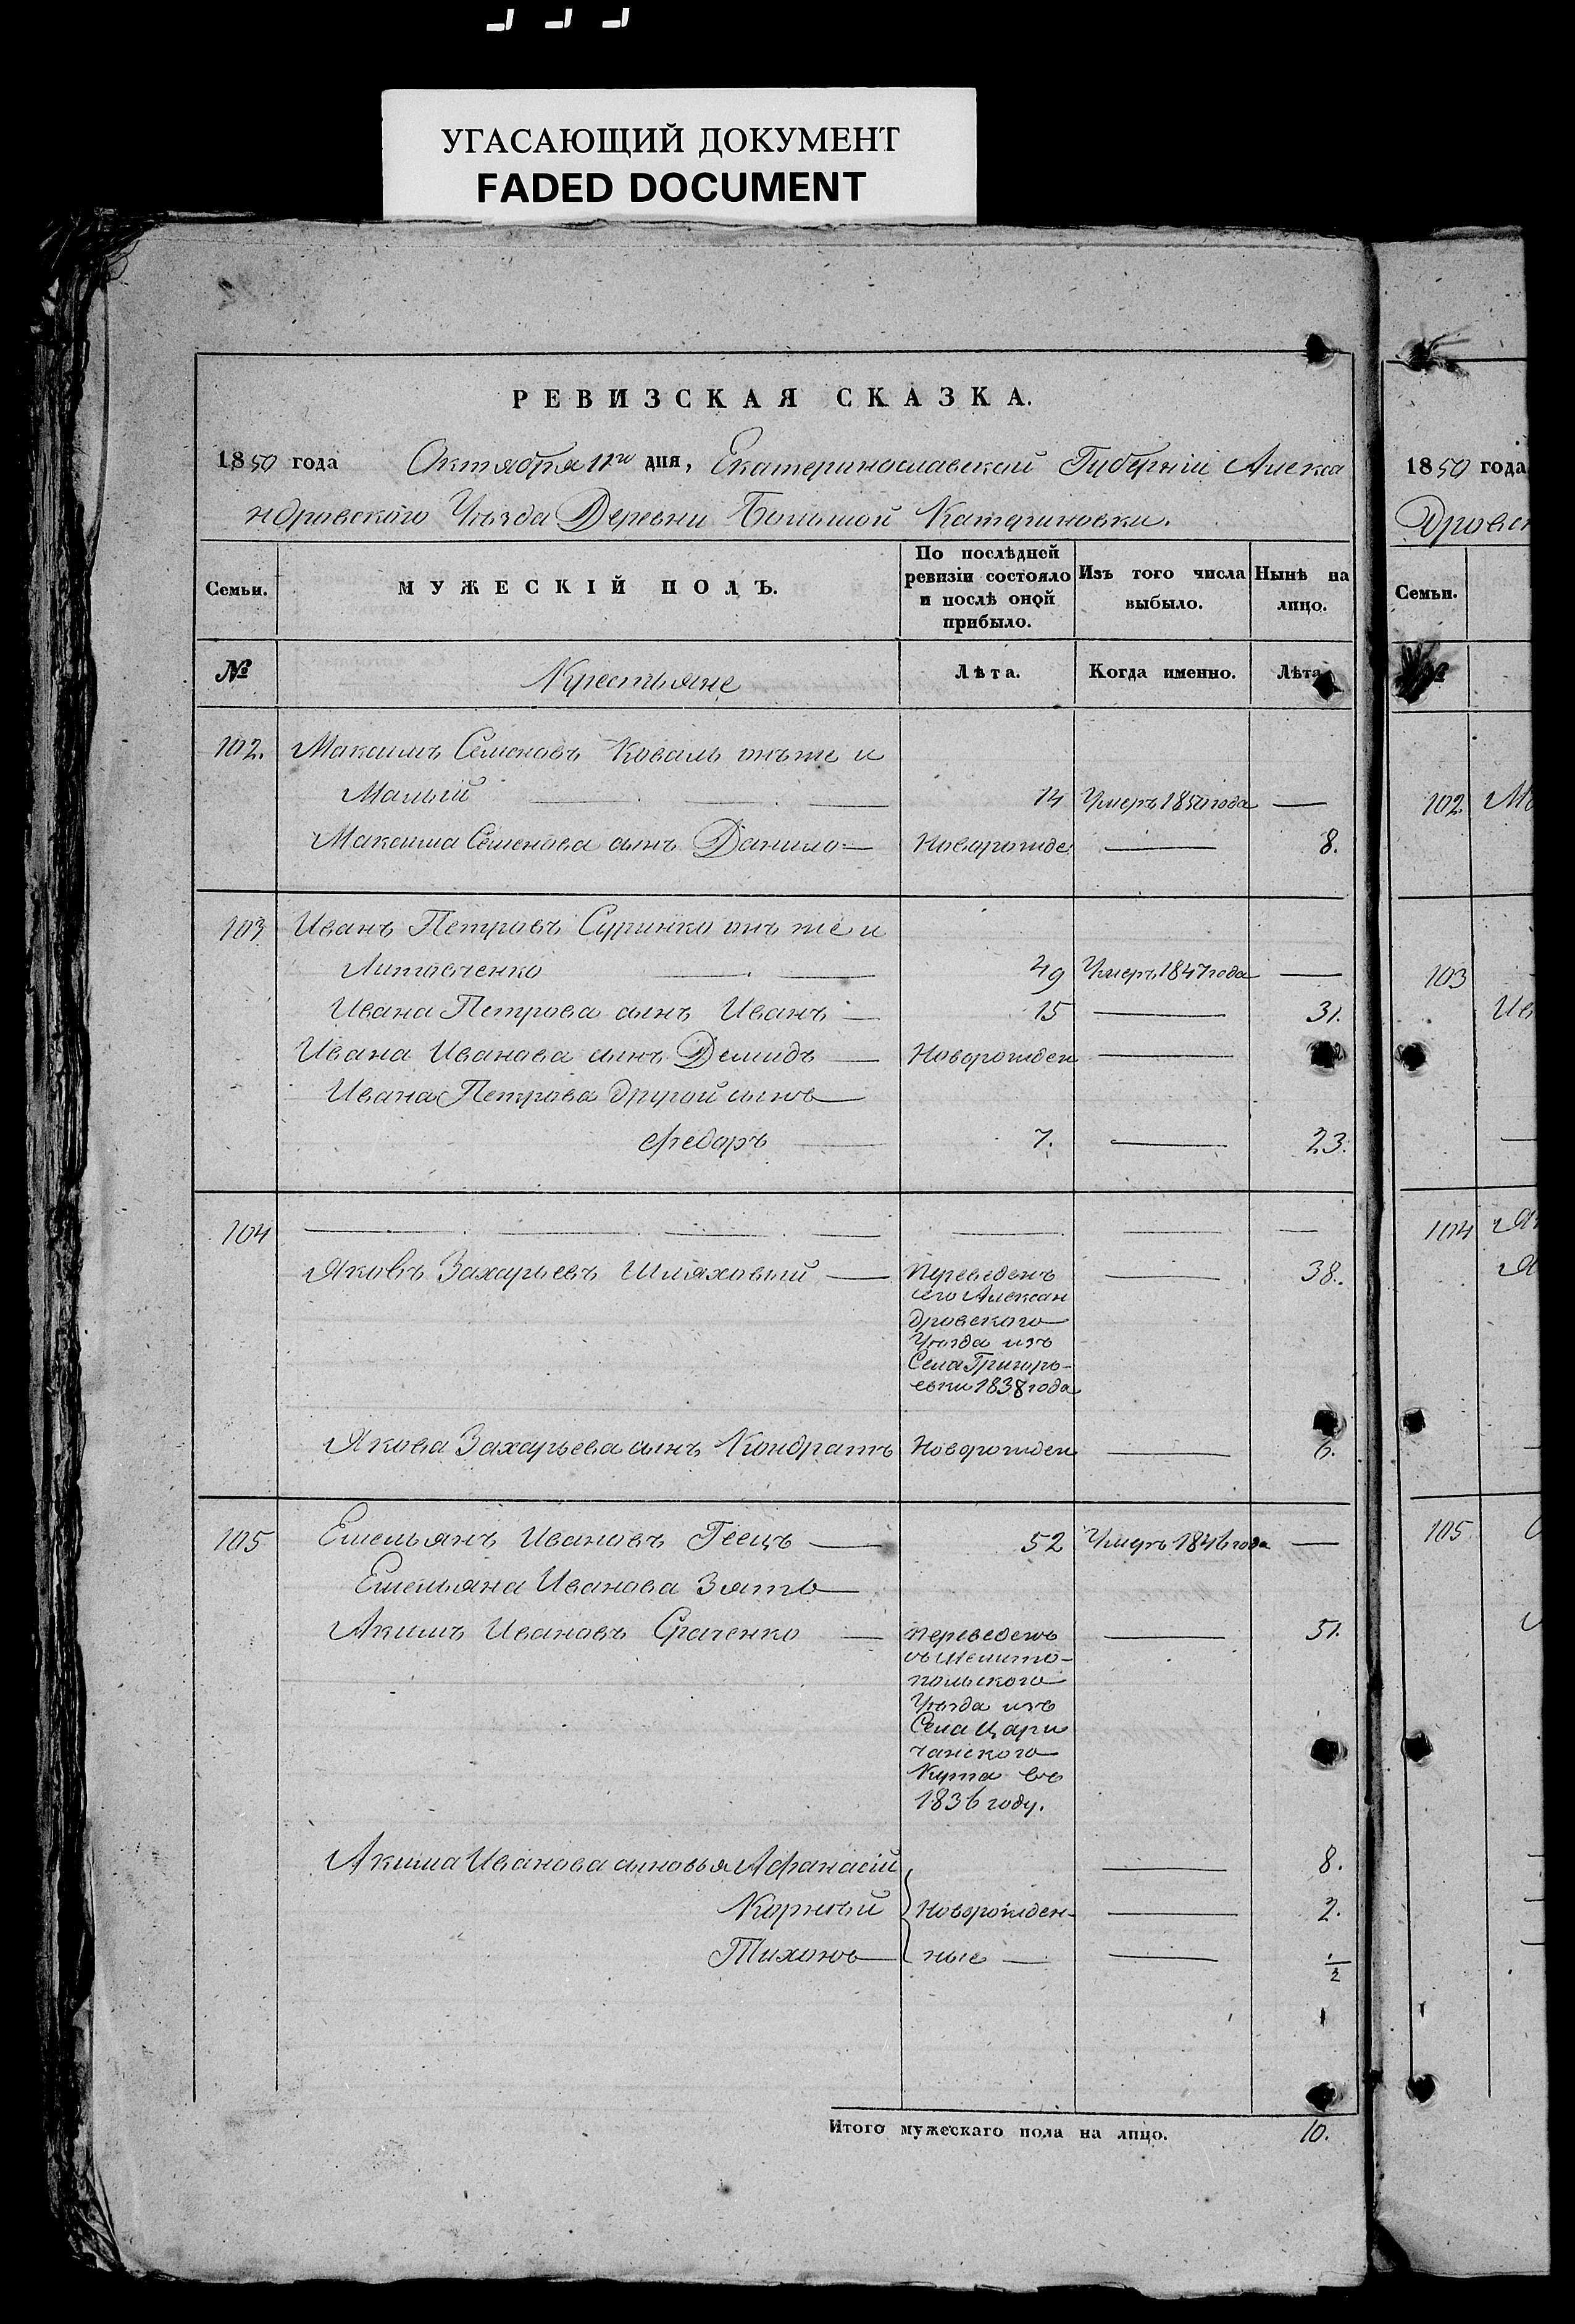 УГАСАЮЩИЙ ДОКУМЕНТ
FADED DOCUMENT
РЕВИЗСКАЯ СКАЗКА.
1850 года Октября 11го дня, Екатеринославской Губерніи Алекса
ндровского Уѣзда Деревни Большой Катериновки.
Семьи.
МУЖЕСКІЙ ПОЛЪ.
По послѣдней
ревизіи состояло
и послѣ оной
прибыло.
Изъ того числа
выбыло.
Нынѣ на
лицо.
№ Крестьяне Лѣта. Когда именно. Лѣта
102. Максимъ Семеновъ Коваль онъ же и
Малый 14 Умеръ 1850 года —
Максима Семенова сынъ Данило — Новорожде — 8.
103 Иванъ Петровъ Суринко онъ же и
Литовченко 49 Умеръ 1847 года —
Ивана Петрова сынъ Иванъ — 15 — 31.
Ивана Иванова сынъ Демидъ — Новорожден —
Ивана Петрова другой сынъ —
Федоръ — 7. — 23.
104 — — — —
Яковъ Захарьевъ Шляховый — — 38.
Переведенъ
сего Алексан
дровского
Уѣзда изъ
Села Григорь-
евки 1838 года
Якова Захарьева сынъ Кондратъ Новорожден — 6.
105 Емельянъ Ивановъ Геецъ — 52 Умеръ 1846 года —
Емельяна Иванова Зять —
Акимъ Ивановъ Сраченко — — 51.
переведенъ
съ Мелито-
польского
Уѣзда изъ
Села Цари
чанского
Кута въ
1836 году.
Акима Иванова сыновья Афанасій — 8.
Корнѣй Новорожден- — 2.
Тихонъ — ные — — 1/2
Итого мужескаго пола на лицо. 10.
1850 года
Дровск
Семьи.
№
102.
103
Ив
104
105